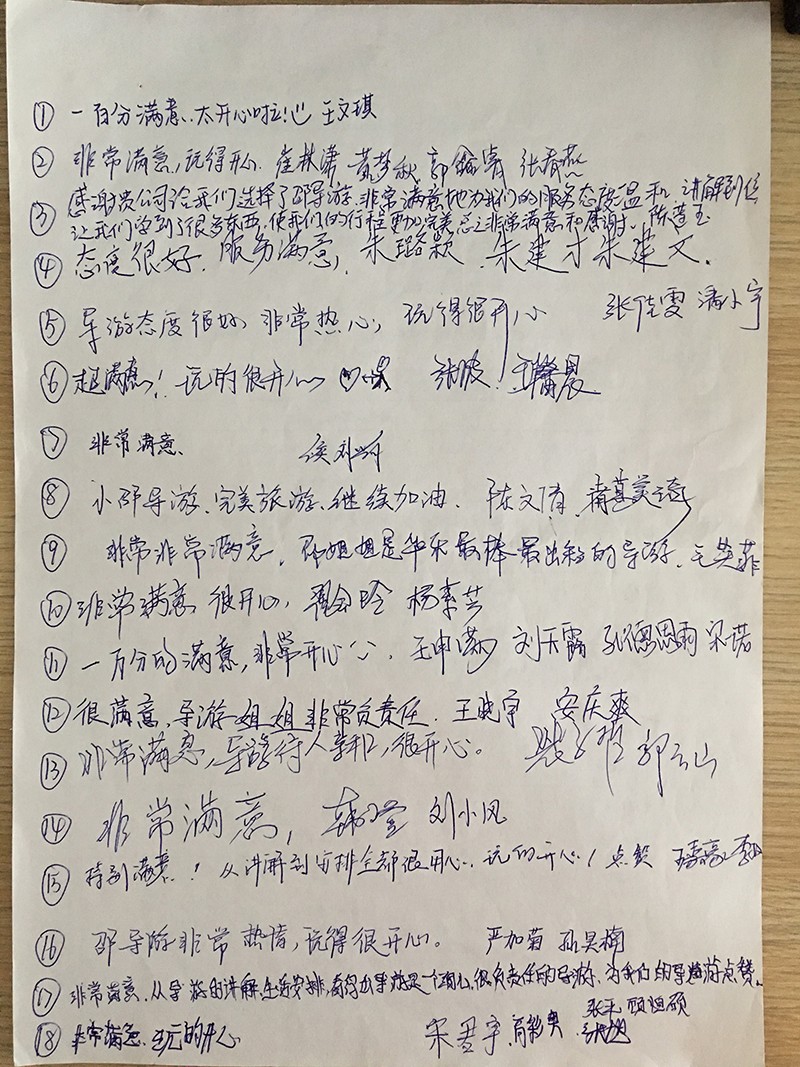 ① 一百分满意、太开心啦! 王文琪
② 非常满意,玩得开心. 崔 黄梦秋 郭 张春燕
感谢贵公司给我们选择了邵导游,非常满意他为我们的服务态度温和 讲解到位
③ 让我们学到了很多东西,使我们的行程更加完美总之非常满意和感谢. 陈莲玉
④ 态度很好. 服务满意, 朱璐颖 . 朱建才 朱建文.
⑤ 导游态度很好 非常热心, 玩得很开心 张佳雯 潘小宇
⑥ 超满意! 玩的很开心 张 王馨晨
⑦ 非常满意、
⑧ 小邵导游、完美旅游、继续加油、 陈文倩
⑨ 非常非常满意, 邵姐姐是华东最棒最出色的导游、毛英菲
⑩ 非常满意 很开心, 杨素芸
⑪ 一万分的满意,非常开心 . 王申 刘天霞 宋诺
⑫ 很满意,导游姐姐非常负责任. 王晓宇 安庆爽
⑬ 非常满意,导游待人亲和,很开心。 郭云山
⑭ 非常满意, 刘小凤
⑮ 特别满意! 从讲解到安排全都很用心. 玩的开心! 点赞
⑯ 邵导游非常热情,玩得很开心。 严加菊 孙昊楠
⑰ 非常满意、从导游的讲解、生活安排,看得出导游是一个细心、很负责任的导游、为我们的导游点赞、
张禾
⑱ 非常满意、玩的开心 宋君宇、